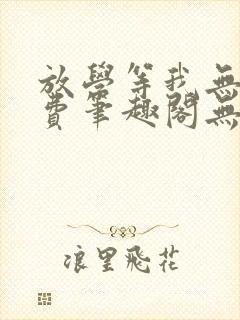 放學等我無
費筆趣閣無
浪里飛花